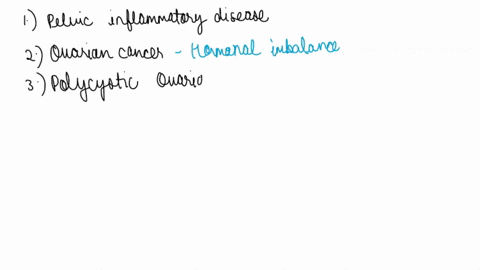 1.) Pelvic inflammatory disease
2.) Ovarian cancer - Hormonal imbalance
3.) Polycystic Ovario